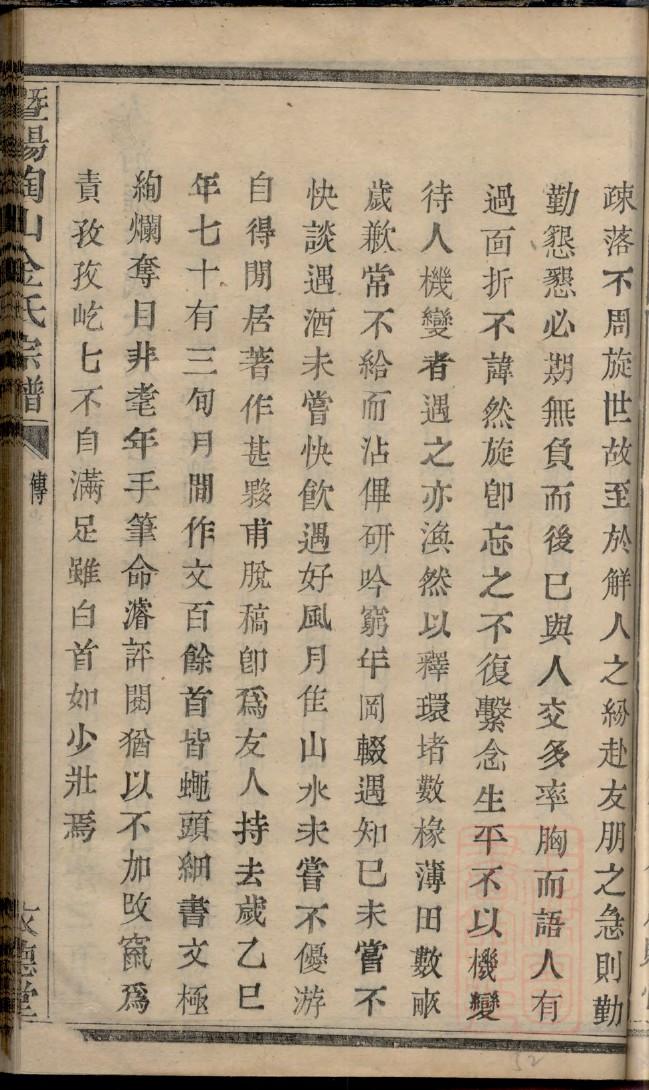 疎落不周旋世故至於解人之紛赴友朋之急則勤
勤懇懇必期無負而後已與人交多率胸而語人有
過面折不諱然旋卽忘之不復繫念生平不以機變
待人機變者遇之亦渙然以釋環堵數椽薄田數畝
歲歉常不給而沾僤研吟窮年罔輟遇知已未嘗不
快談遇酒未嘗快飮遇好風月隹山水未嘗不優游
自得閒居著作甚夥甫脫稿卽爲友人持去歲乙巳
年七十有三旬月間作文百餘首皆蠅頭細書文極
絢爛奪目非耄年手筆命濬評閱猶以不加攺竄爲
責孜孜屹七不自滿足雖白首如少壯焉
暨陽陶山金氏宗譜
傳
文德堂
52